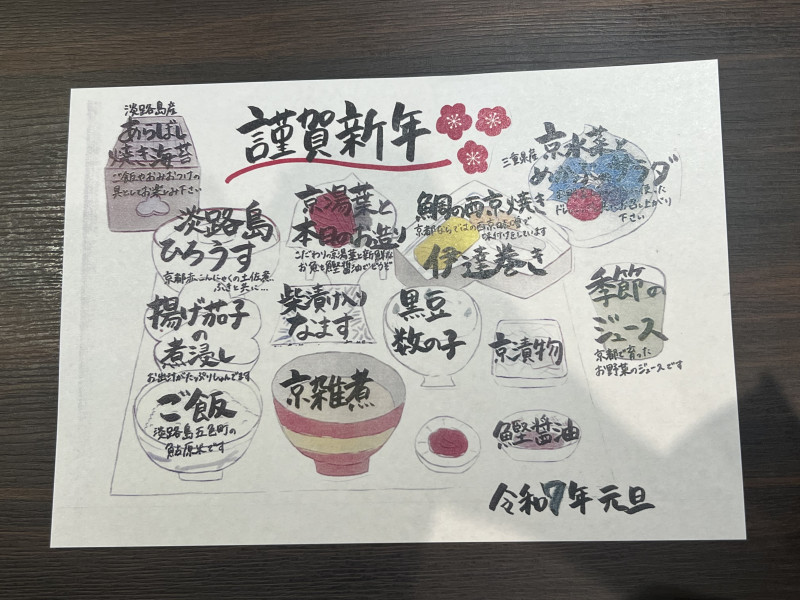 謹賀新年
淡路島産
あらばしり
焼き海苔
ご飯やおみおつけの
具としてお楽しみ下さい
京水菜と
三重県産
下さい
淡路島
ひろうす
京都赤こんにゃくの土佐煮
ふきと共に…
京湯葉と
本日のお造り
こだわりの京湯葉と新鮮な
お魚を鰹醤油でどうぞ
鯛の西京焼き
京都ならではの西京味噌で
味付けをしています
伊達巻き
季節の
ジュース
京都で育った
お野菜のジュースです
揚げ茄子
の
煮浸し
お出汁がたっぷりしゅんでます
柴漬け入り
なます
黒豆
数の子
京漬物
ご飯
淡路島五色町の
鮎原米です
京雑煮
鰹醤油
令和7年 元旦